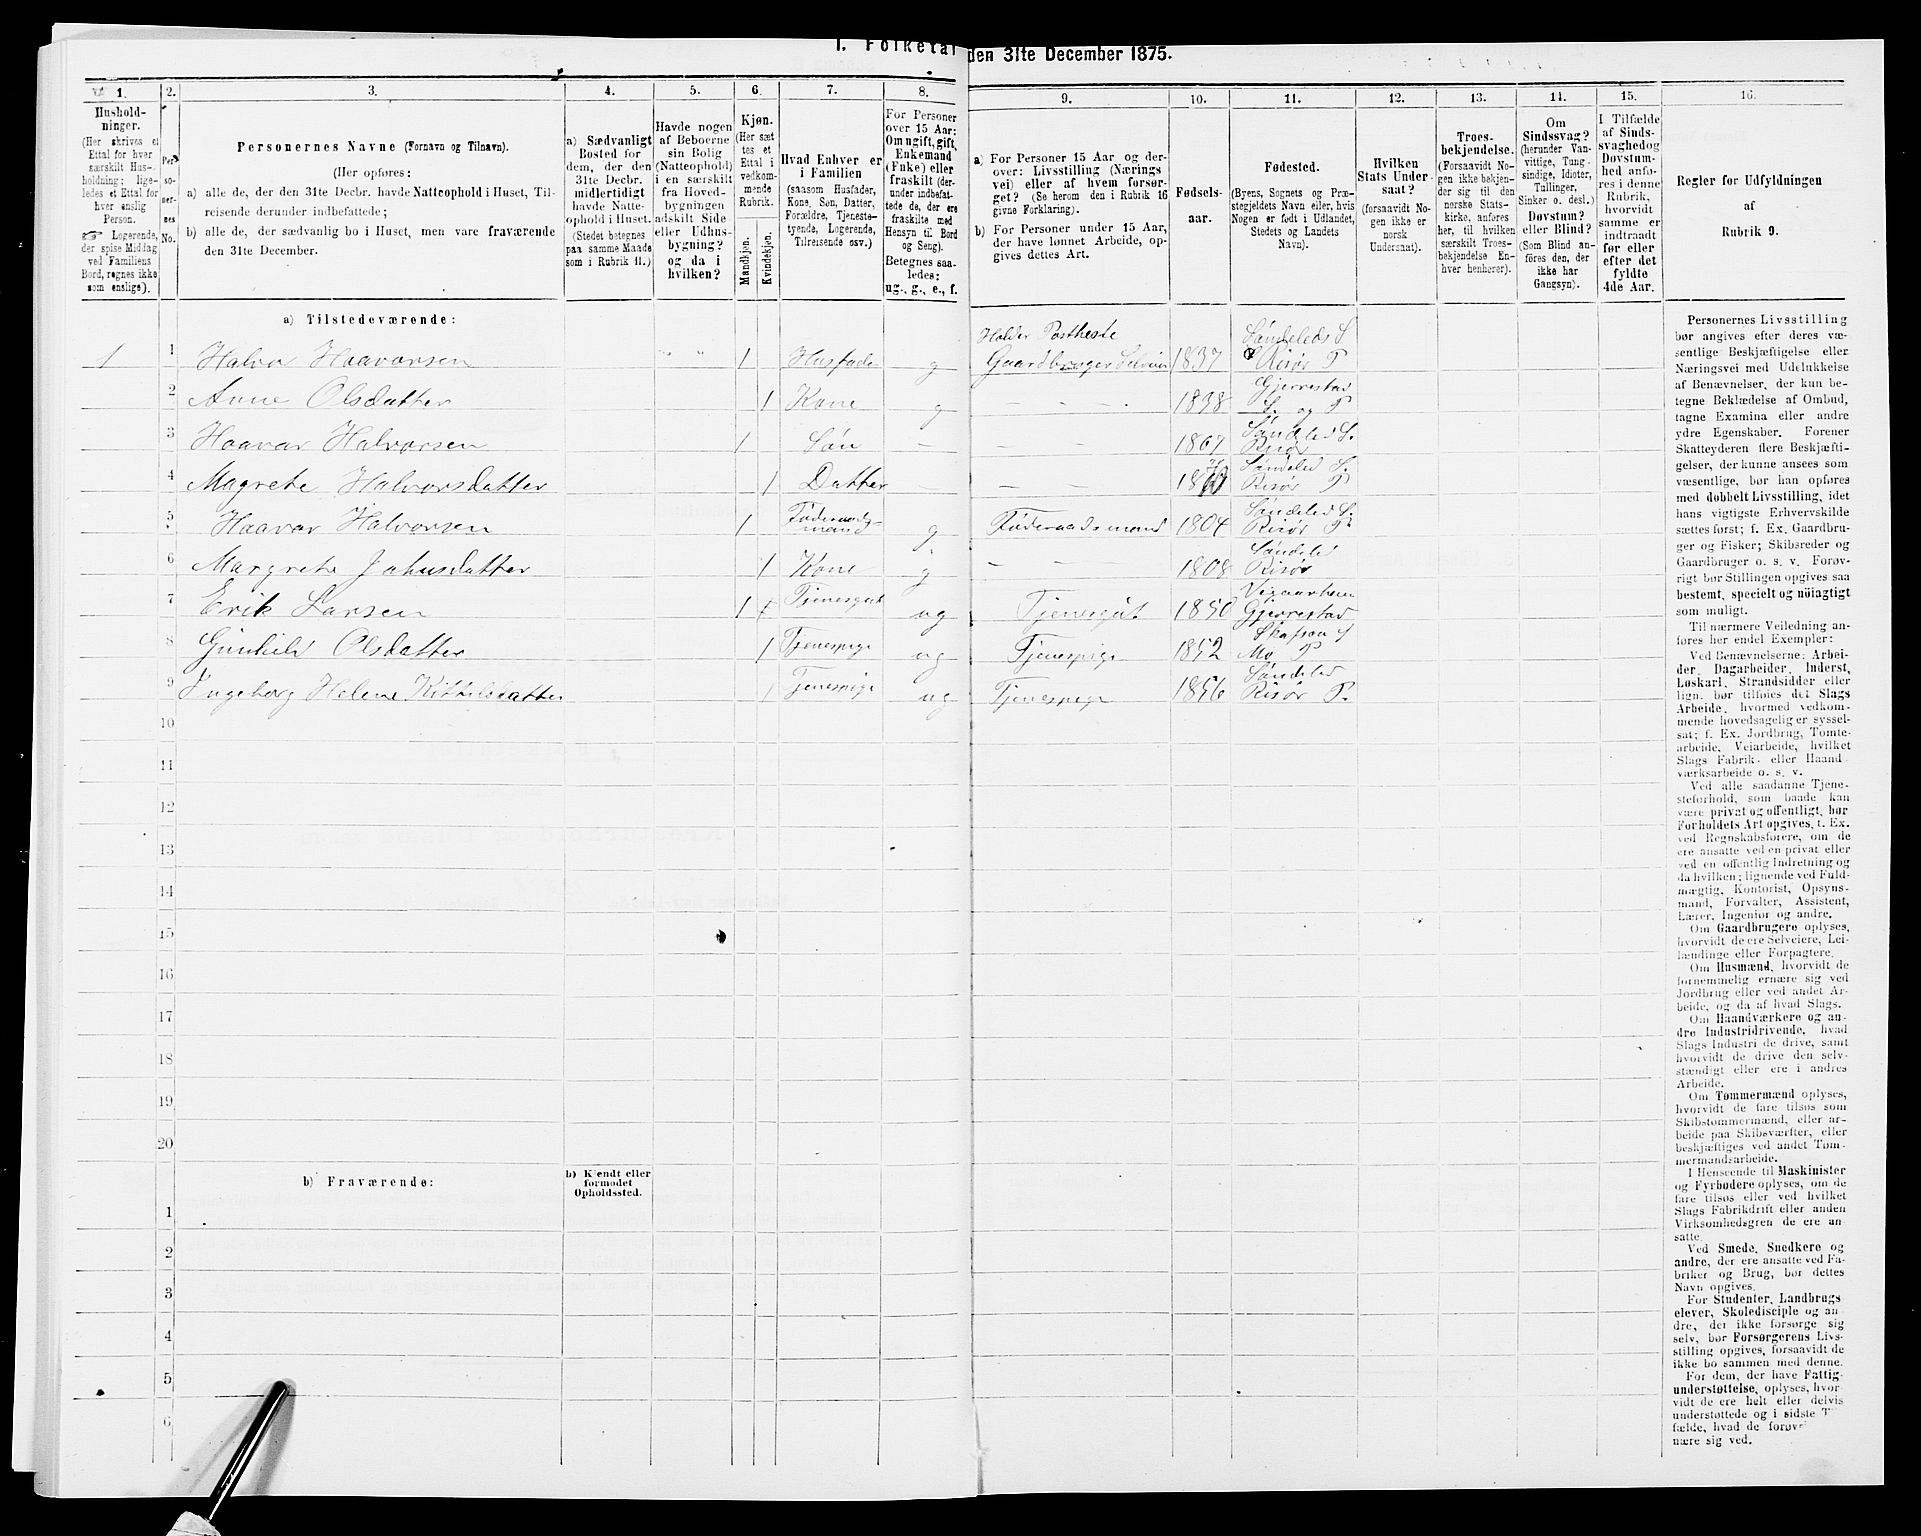 1. Folketal den 31te December 1875.
1. 2. 3. 4. 5. 6. 7. 8. 9. 10. 11. 12. 13. 14. 15. 16.
Hushold-
ninger.
(Her skrives et
Ettal for hver
særskilt Hus-
holdning; lige-
ledes et Ettal for
hver enslig
Person.
☞ Logerende,
der spise Middag
ved Familiens
Bord, regnes ikke
som enslige).
Per-
so-
ner-
nes
No.
Personernes Navne (Fornavn og Tilnavn).
(Her opføres:
a) alle de, der den 31te Decbr. havde Natteophold i Huset, Til-
reisende derunder indbefattede;
b) alle de, der sædvanlig bo i Huset, men vare fraværende
den 31te December.
a) Sædvanligt
Bosted for
dem, der den
31te Decbr.
midlertidigt
havde Natte-
ophold i Huset.
(Stedet betegnes
paa samme Maade
som i Rubrik 11.)
Havde nogen
af Beboerne
sin Bolig
(Natteophold)
i en særskilt
fra Hoved-
bygningen
adskilt Side
eller Udhus-
bygning?
og da i
hvilken?
Kjøn.
(Her sæt-
tes et
Ettal i
vedkom-
mende
Rubrik.
Mandkjøn.
Kvindekjøn.
Hvad Enhver er
i Familien
(saasom Husfader,
Kone, Søn, Datter,
Forældre, Tjeneste-
tyende, Logerende,
Tilreisende osv.)
For Personer
over 15 Aar:
Om ugift, gift,
Enkemand
(Enke) eller
fraskilt (der-
under indbefat-
tede de, der ere
fraskilte med
Hensyn til Bord
og Seng).
Betegnes saa-
ledes:
ug., g., e., f.
a) For Personer 15 Aar og der-
over: Livsstilling (Nærings
vei) eller af hvem forsør-
get? (Se herom den i Rubrik 16
givne Forklaring).
b) For Personer under 15 Aar,
der have lønnet Arbeide, op-
gives dettes Art.
Fødsels-
aar.
Fødested.
(Byens, Sognets og Præ-
stegjeldets Navn eller, hvis
Nogen er født i Udlandet,
Stedets og Landets
Navn).
Hvilken
Stats Under-
saat?
(forsaavidt No-
gen ikke er
norsk
Undersaat).
Troes-
bekjendelse.
(Forsaavidt No-
gen ikke bekjen-
der sig til den
norske Stats-
kirke, anføres
her, til hvilken
særskilt Troes-
bekjendelse En-
hver henhører).
Om
Sindssvag?
(herunder Van-
vittige, Tung-
sindige, Idioter,
Tullinger,
Sinker o. desl.)
Døvstum?
eller Blind?
(Som Blind an-
føres den, der
ikke har
Gangsyn).
I Tilfælde
af Sinds-
svaghed og
Døvstum-
hed anfø-
res i denne
Rubrik,
hvorvidt
samme er
indtraadt
før eller
efter det
fyldte
4de Aar.
Regler for Udfyldningen
af
Rubrik 9.
a) Tilstedeværende:
1 1 Halvor Haavorsen " " 1 Husfader g Holder Postheste Gaardbruger Selveier 1837 Søndeleds S Risør P
2 Anne Olsdatter 1 Kone g — — 1838 Gjerrestad S. og P
3 Haavar Halvorsen 1 Søn — — — 1867 Søndeled S. Risør
4 Magrete Halvorsdatter 1 Datter — — Søndeled S. Risør P
5 Haavar Halvorsen 1 Føderaadsmand g Føderaadsmand 1804 Søndeled S. Risør P
6 Margrete Jahnsdatter 1 Kone g — — 1808 Søndeled Risør
7 Erik Larsen 1 Tjenesgut ug Tjenesgut 1850 Gjerrestad
8 Gunhild Olsdatter 1 Tjenespige ug Tjenespige 1852 Mo P
9 Ingeborg Helene Kittilsdatter 1 Tjenespige ug Tjenespige 1856 Søndeled Risør P.
10
11
12
13
14
15
16
17
18
19
20
b) Fraværende:
b) Kjendt eller
formodet
Opholdssted.
1
2
3
4
5
6
Personernes Livsstilling
bør angives efter deres væ-
sentlige Beskjæftigelse eller
Næringsvei med Udelukkelse
af Benævnelser, der kun be-
tegne Beklædelse af Ombud,
tagne Examina eller andre
ydre Egenskaber. Forener
Skatteyderen flere Beskjæfti-
gelser, der kunne ansees som
væsentlige, bør han opføres
med dobbelt Livsstilling, idet
hans vigtigste Erhvervskilde
sættes først; f. Ex. Gaardbru-
ger og Fisker; Skibsreder og
Gaardbruger o. s. v. Forøv-
rigt bør Stillingen opgives saa
bestemt, specielt og nøiagtigt
som muligt.
Til nærmere Veiledning an-
føres her endel Exempler:
Ved Benævnelserne: Arbei-
der, Dagarbeider, Inderst,
Løskarl, Strandsidder eller
lign. bør tilføies det Slags
Arbeide, hvormed vedkom-
mende hovedsagelig er syssel-
sat; f. Ex. Jordbrug, Tomte-
arbeide, Veiarbeide, hvilket
Slags Fabrik- eller Haand
værksarbeide o. s. v.
Ved alle saadanne Tjene-
steforhold, som baade kan
være privat og offentligt, bør
Forholdets Art opgives, t. Ex.
ved Regnskabsførere, om de
ere ansatte ved en privat eller
ved en offentlig Indretning og
da hvilken; lignende ved Fuld-
mægtig, Kontorist, Opsyns-
mand, Forvalter, Assistent,
Lærer, Ingeniør og andre.
Om Gaardbrugere oplyses,
hvorvidt de ere Selveiere, Lei-
lændinge eller Forpagtere.
Om Husmænd, hvorvidt de
fornemmelig ernære sig ved
Jordbrug eller ved andet Ar-
beide, og da af hvad Slags.
Om Haandværkere og an-
dre Industridrivende, hvad
Slags Industri de drive, samt
hvorvidt de drive den selv-
stændigt eller ere i andres
Arbeide.
Om Tømmermænd oplyses,
hvorvidt de fare tilsøs som
Skibstømmermænd, eller ar-
beide paa Skibsværfter, eller
beskjæftiges ved andet Tøm-
mermandsarbeide.
I Henseende til Maskinister
og Fyrbødere oplyses, om de
fare tilsøs eller ved hvilket
Slags Fabrikdrift eller anden
Virksomhedsgren de ere an-
satte.
Ved Smede, Snedkere og
andre, der ere ansatte ved Fa-
briker og Brug, bør dettes
Navn opgives.
For Studenter, Landbrugs
elever, Skoledisciple og an-
dre, der ikke forsørge sig
selv, bør Forsørgerens Livs-
stilling opgives, forsaavidt de
ikke bo sammen med denne.
For dem, der have Fattig-
understøttelse, oplyses, hvor-
vidt de ere helt eller delvis
understøttede og i sidste T
fælde, hvad de forøv
nære sig ved.